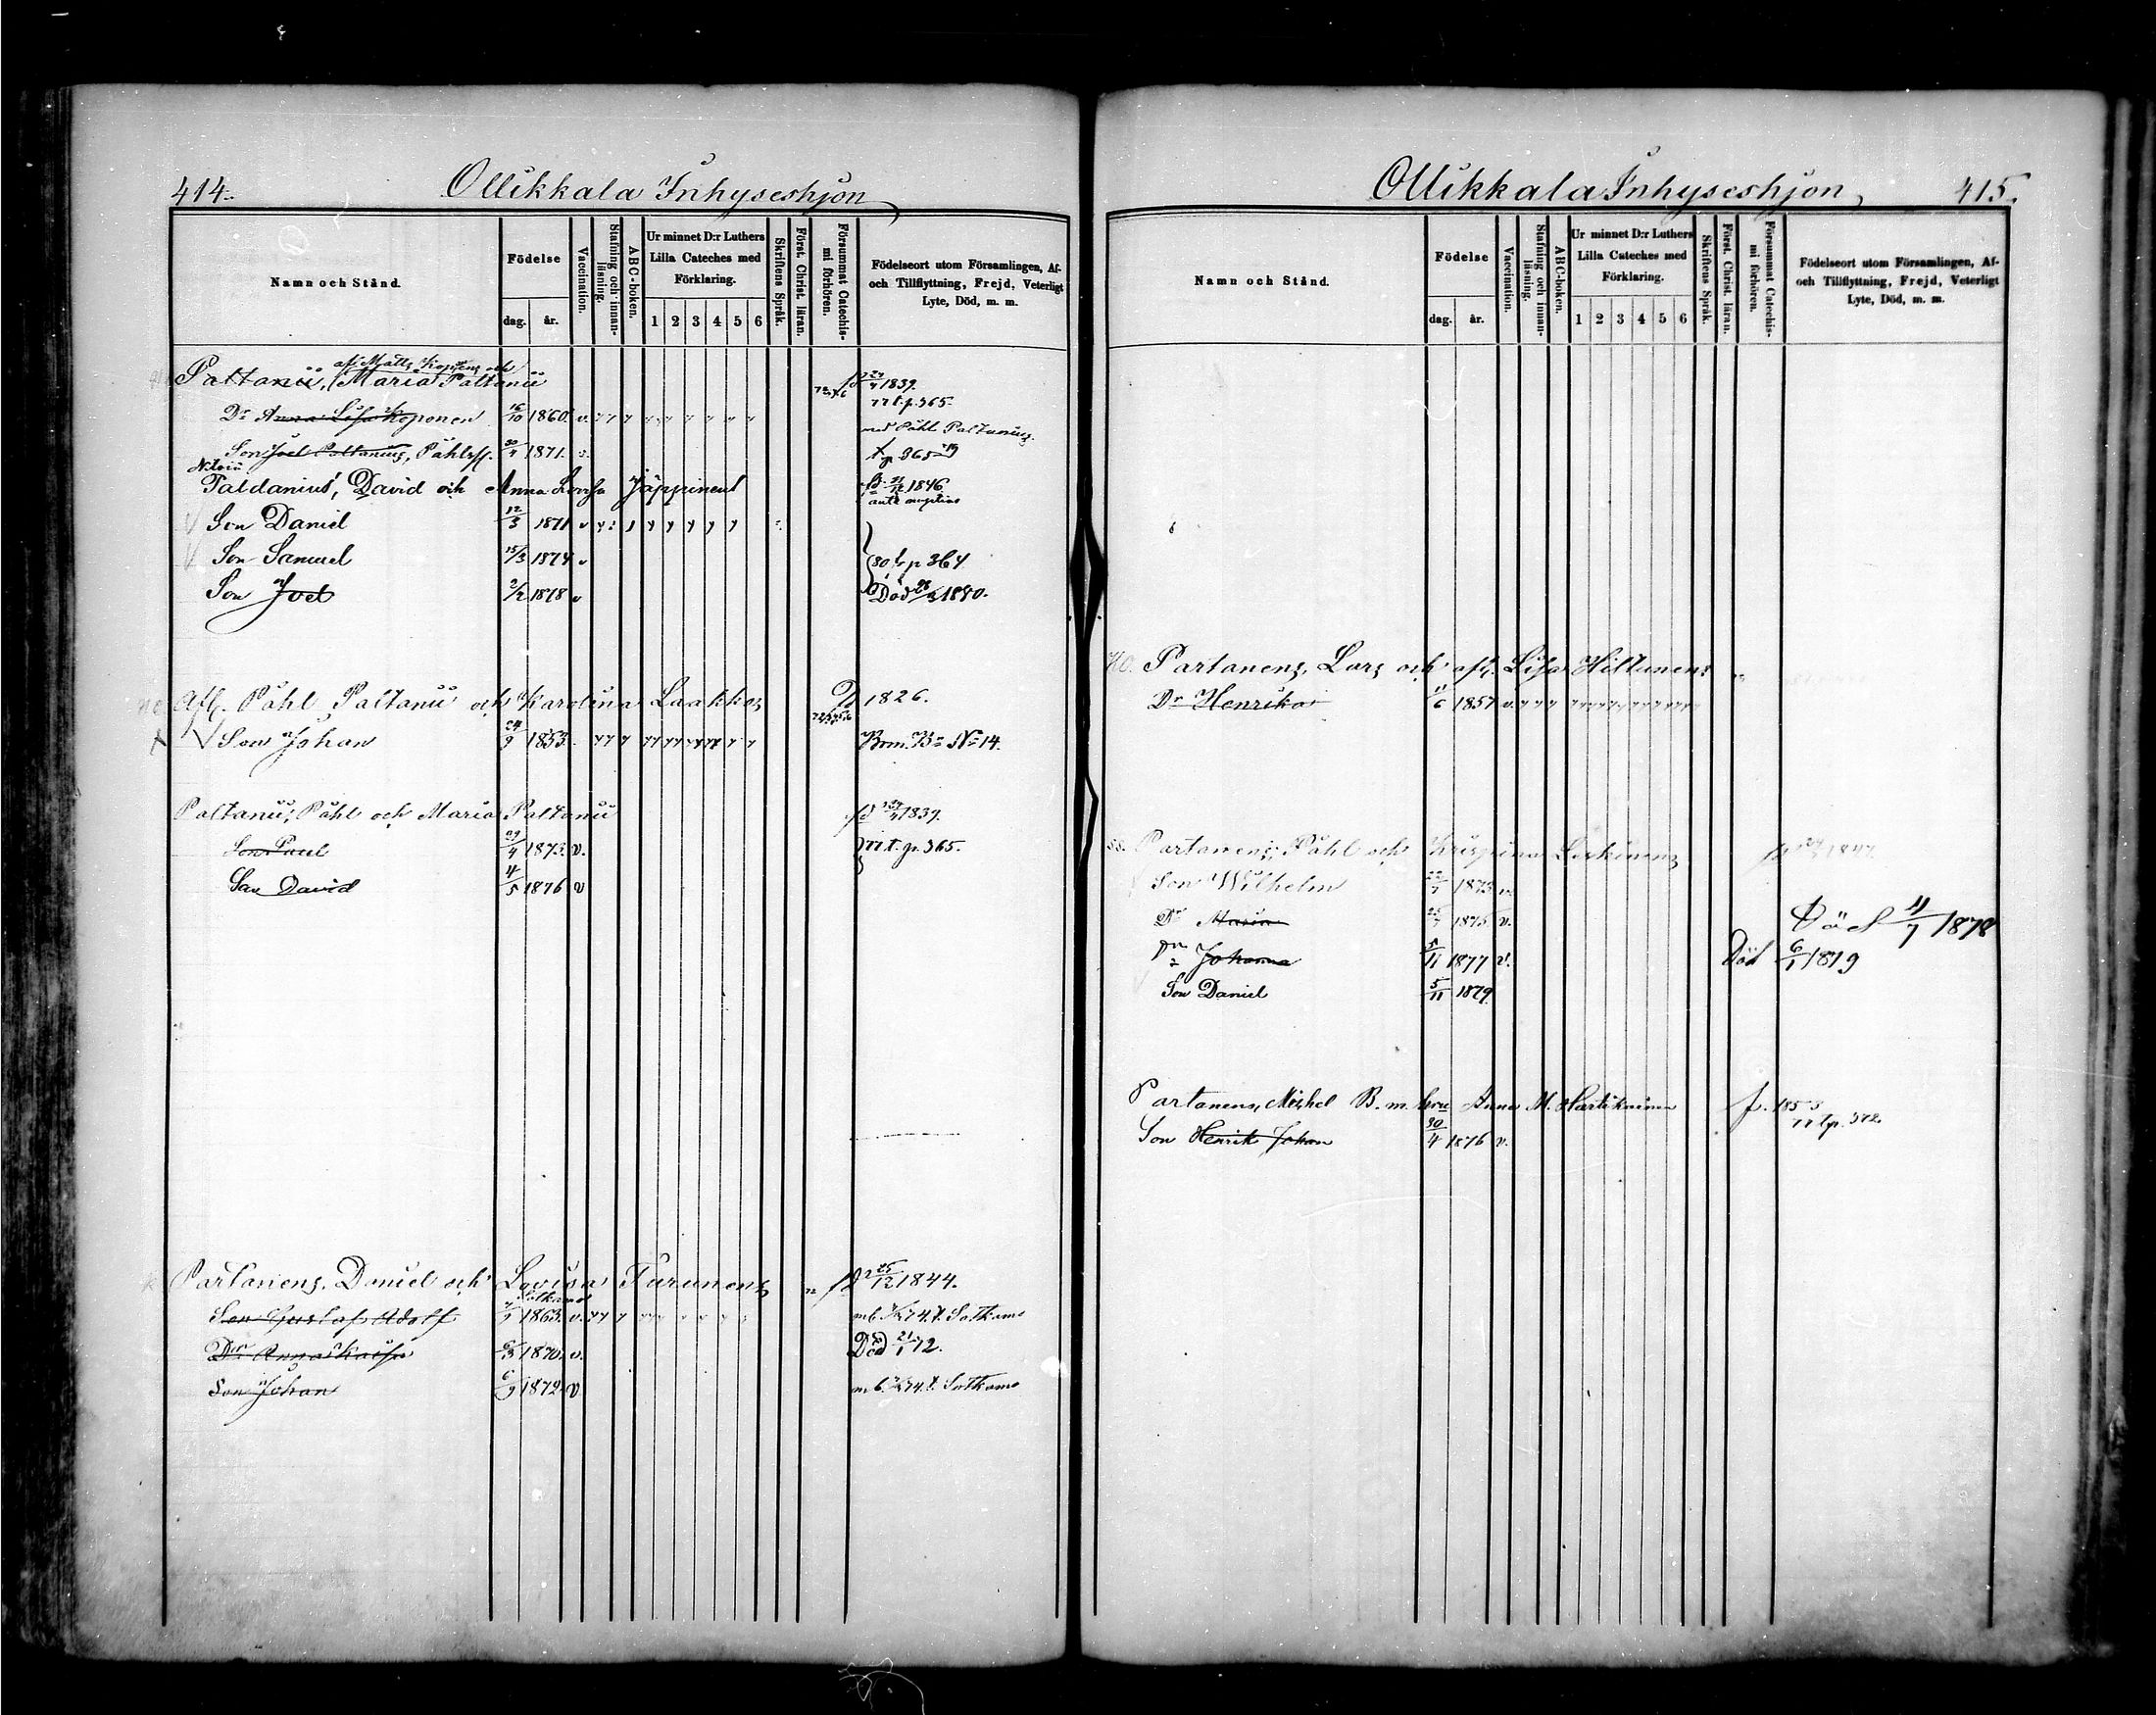 414.
Ollikkala Inhyseshjon
Namn och Stånd.
Födelse
dag.
år.
Vaccination.
Stafning och innanläsning.
ABC-boken.
Ur minnet D:r Luthers
Lilla Cateches med
Förklaring.
1 2 3 4 5 6
Skriftens Språk.
Först. Christ. läran.
Försummat Catechismi förhören.
Födelseort utom Församlingen, Af-
och Tillflyttning, Frejd, Veterligt
Lyte, Död, m. m.
afl. Matts Kopnens och
Paltanii, Maria Paltanii 1839.
77 t. p. 365.
Dr Anna Lisa Koponen 16/10 1860. v. med Påhl Paltanius
Son Joel Paltanius, Påhlss. 30/4 1871. p 365
Paldanius, David och Anna Lovisa Jäppinens 1846
Son Daniel 12/3 1871 v
Son Samuel 15/3 1874 v 80 t. p 364
Son Joel 2/2 1878 v Död 1880.
Afl. Påhl Paltanii och Karolina Laakkos 1826.
Son Johan 24/9 1853. Bom. B. No 14.
Paltanii, Påhl och Maria Paltanii 1839.
Son Paul 29/4 1873. v. 77 t. p. 365.
Son David 4/5 1876 v
Partanens, Daniel och Lovisa Turunens 25/12 1844.
Sotkamo
Son Gustaf Adolf 1863. v. 74. t. Sotkamo
Dr Anna Kaisa 1870. v. Död 21/1 72.
Son Johan 6/9 1872. v 74. t. Sotkamo
Ollikkala Inhyseshjon
415.
Namn och Stånd.
Födelse
dag.
år.
Vaccination.
Stafning och innanläsning.
ABC-boken.
Ur minnet D:r Luthers
Lilla Cateches med
Förklaring.
1 2 3 4 5 6
Skriftens Språk.
Först. Christ. läran.
Försummat Catechismi förhören.
Födelseort utom Församlingen, Af-
och Tillflyttning, Frejd, Veterligt
Lyte, Död, m. m.
Partanens, Lars och afl. Lisa Hiltunens
Dr Henrika 11/6 1857 v.
Partanens, Påhl och Krispina Leskinens
Son Wilhelm 1873 v.
Dr Maria 1875 v. Död 11/7 1878
Dr Johanna 5/11 1877 v. Död 6/1 1879
Son Daniel 5/11 1879.
Partanens, Michel B. m. hru Anna M. Hartikainen f. 1853
77 t p. 372.
Son Henrik Johan 30/4 1876 v.